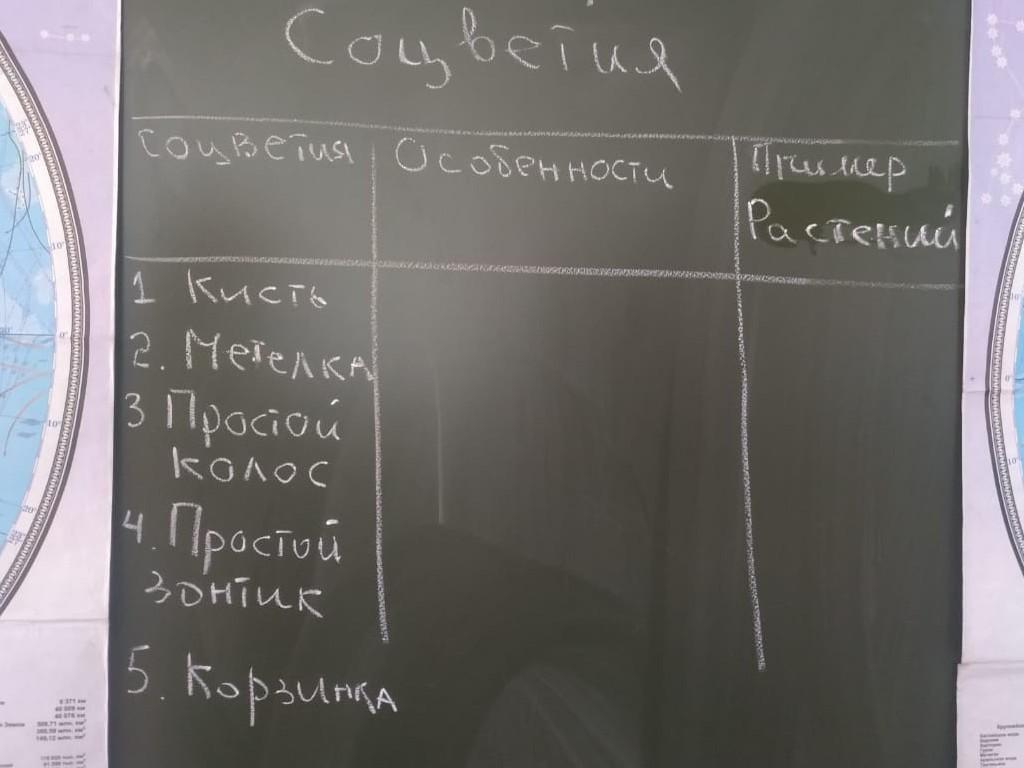 Соцветия
Соцветия Особенности Пример
Растений
1 Кисть
2. Метелка
3 Простой
колос
4. Простой
зонтик
5. Корзинка